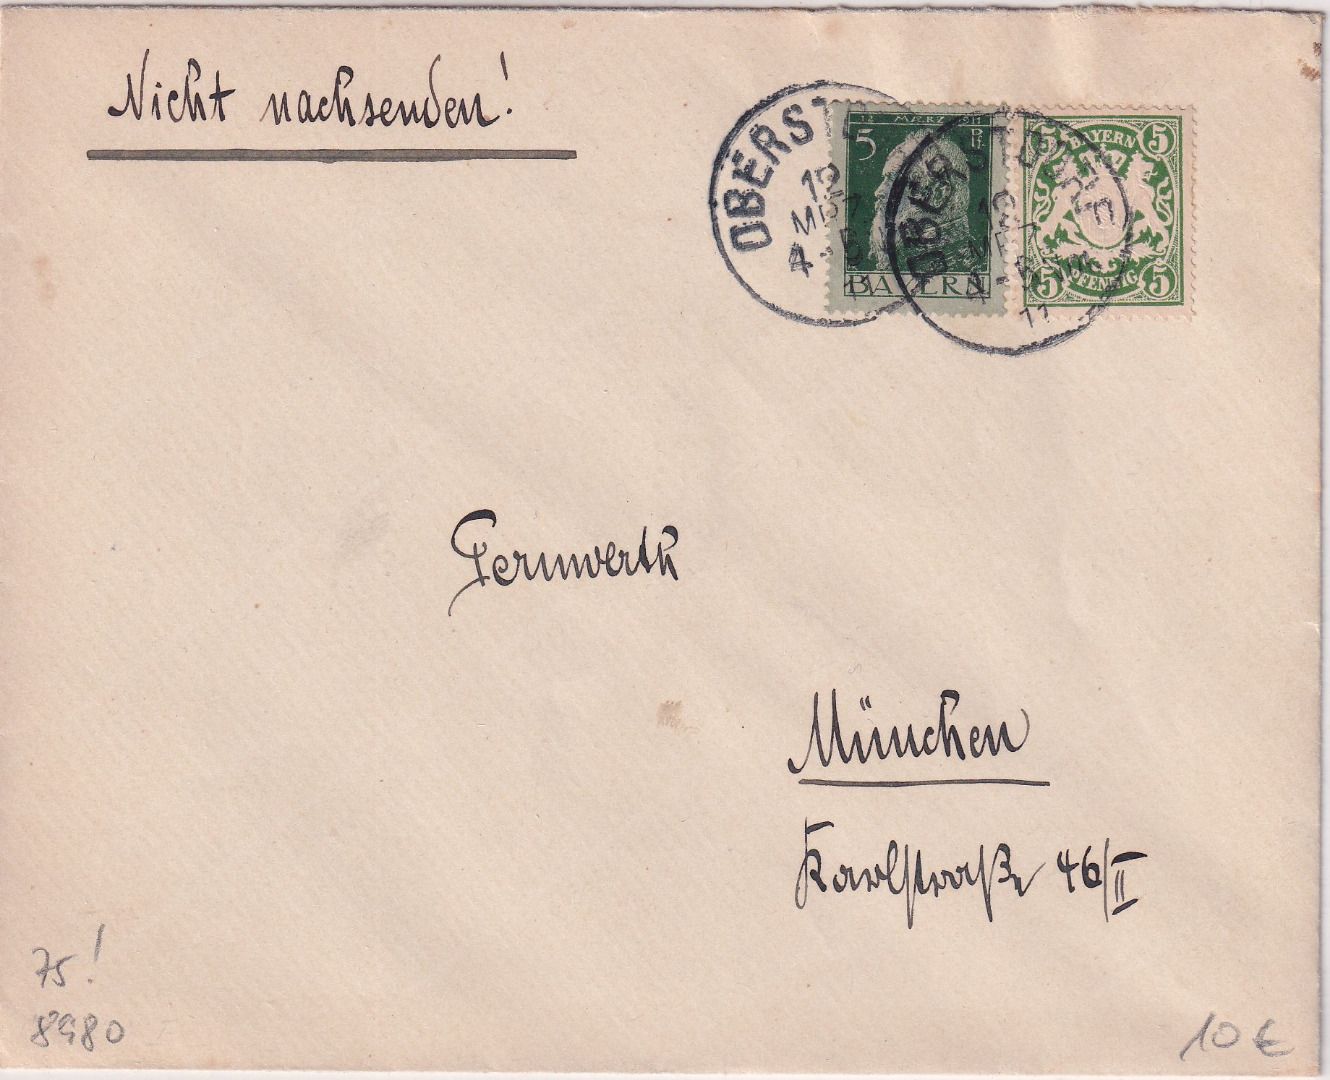 Nicht nachsenden!
OBERSTDORF
12
MRZ
4-5 Nm
11
12. MÆRZ 1911
5 Pf
BAYERN
OBERSTDORF
12
MRZ
4-5 Nm
11
5 BAYERN 5
5 PFENNIG 5
Fernwerth
München
Karlstraße 46/II
75!
8980
10 €